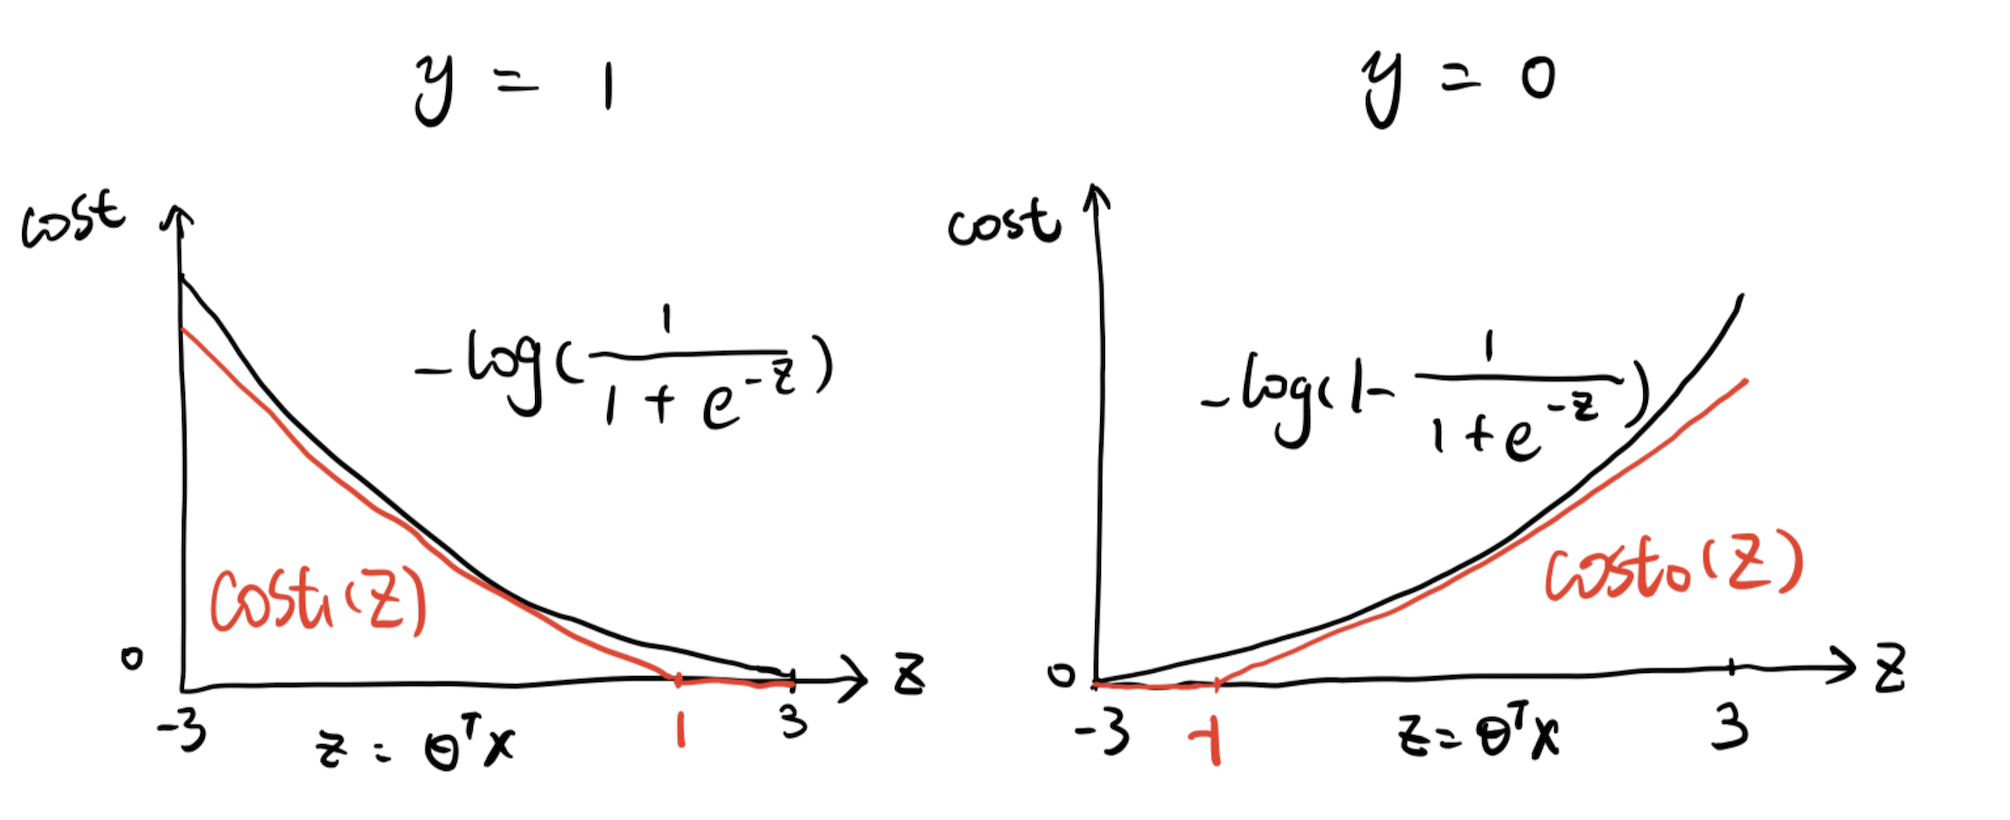 y = 1
cost
-log(1/(1+e^-z))
cost₁(z)
0
z
-3
z = θᵀx
1
3
y = 0
cost
-log(1-1/(1+e^-z))
cost₀(z)
0
z
-3
-1
z = θᵀx
3